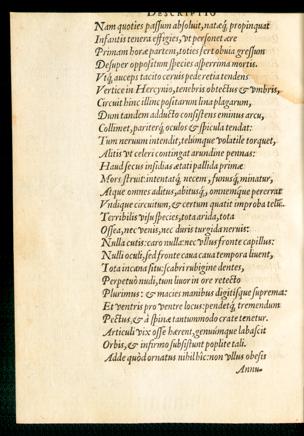 DESCRIPTIO
Nam quoties passum absoluit, natæq; propinquat
Infantis tenera effigies, vt personet ære
Primam horæ partem, toties fert obuia gressum
Desuper oppositum species asperrima mortis.
Vtq; auceps tacito ceruis pede retia tendens
Vertice in Hercynio, tenebris obtectus & vmbris,
Circuit hinc illinc positarum lina plagarum,
Dum tandem adducto consistens eminus arcu,
Collimet, pariterq; oculos & spicula tendat:
Tum neruum intendit, telúmque volatile torquet,
Alitis vt celeri contingat arundine pennas:
Haud secus insidias ætati pallida primæ
Mors struit: intentatq; necem, funusq; minatur,
Atque omnes aditus, abitusq; omnemque pererrat
Vndique circuitum, & certum quatit improba telū.
Terribilis visu species, tota arida, tota
Ossea, nec venis, nec duris turgida neruis:
Nulla cutis: caro nulla: nec vllus fronte capillus:
Nulli oculi, sed fronte caua caua tempora liuent,
Tota incana situ: scabri rubigine dentes,
Perpetuò nudi, tum liuor in ore retecto
Plurimus: & macies manibus digitísque suprema:
Et ventris pro ventre locus: pendetq; tremendum
Pectus, & à spinæ tantummodo crate tenetur.
Articuli vix osse hærent, genuúmque labascit
Orbis, & infirmo subsistunt poplite tali.
Adde quòd ornatus nihil hic: non vllus obesis
Annu-